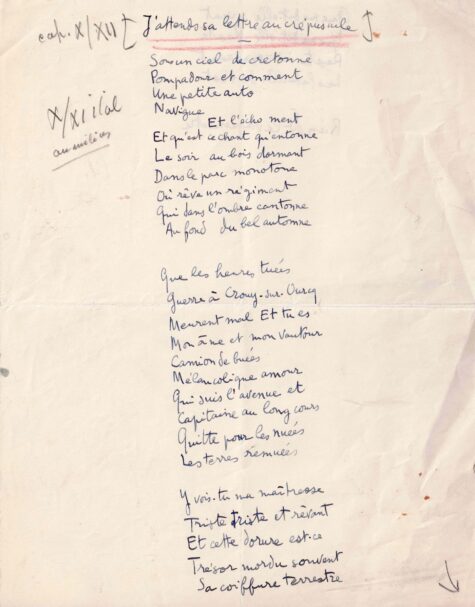 cap. X/XII [ J'attends sa lettre au crépuscule ]
Sous un ciel de cretonne
Pompadour et comment
Une petite auto
X/XI ital
au milieu
Navigue
Et l'écho ment
Et qu'est ce chant qu'entonne
Le soir au bois dormant
Dans le parc monotone
Où rêve un régiment
Qui dans l'ombre cantonne
Au fond du bel automne
Que les heures tuées
Guerre à Crouy-sur-Ourcq
Meurent mal Et tu es
Mon âme et mon vautour
Camion de buées
Mélancolique amour
Qui suis l'avenue et
Capitaine au long cours
Quitte pour les nuées
Les terres remuées
Y vois-tu ma maîtresse
Triste triste et rêvant
Et cette dorure est-ce
Trésor mordu souvent
Sa coiffure terrestre